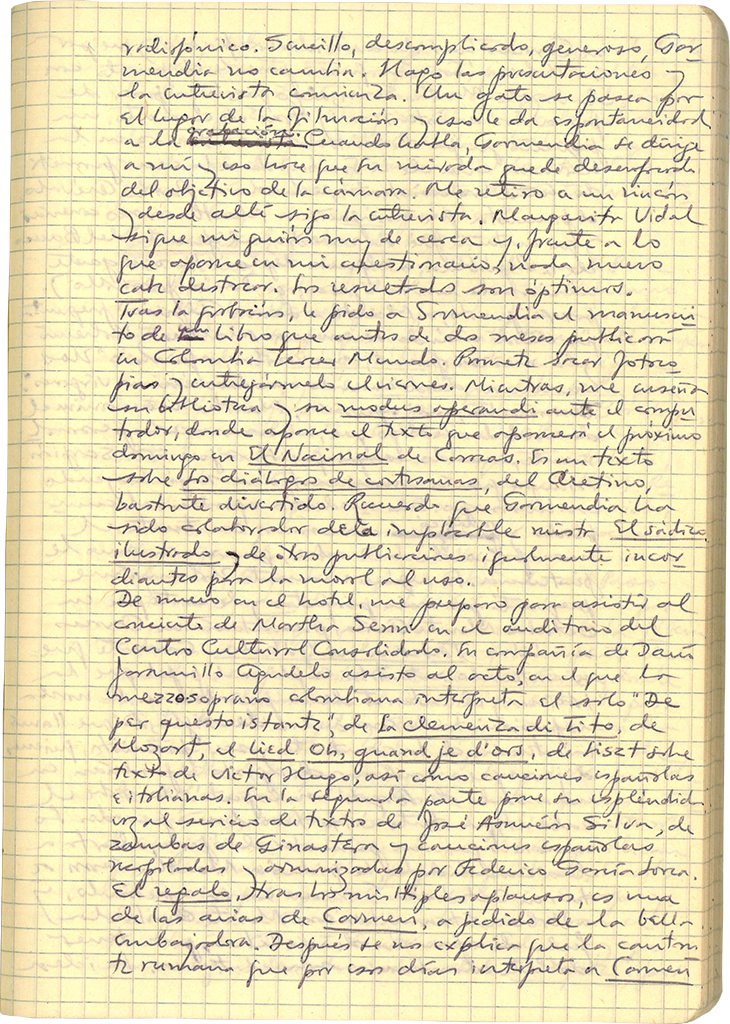 radiofónico. Sencillo, descomplicado, generoso, Gar-
mendia no cambia. Hago las presentaciones y
la entrevista comienza. Un gato se pasea por
el lugar de la filmación y eso le da espontaneidad
a la grabación. Cuando habla, Garmendia se dirige
a mí y eso hace que su mirada quede desenfocada
del objetivo de la cámara. Me retiro a un rincón
y desde allí sigo la entrevista. Margarita Vidal
sigue mi guión muy de cerca y, frente a lo
que aparece en mi cuestionario, nada nuevo
cabe destacar. Los resultados son óptimos.
Tras la grabación, le pido a Garmendia el manuscri-
to de un libro que antes de dos meses publicará
en Colombia Tercer Mundo. Promete sacar fotoco-
pias y entregármelo el viernes. Mientras, me enseña
su biblioteca y su modus operandi ante el compu-
tador, donde aparece el texto que aparecerá el próximo
domingo en El Nacional de Caracas. Es un texto
sobre Los diálogos de cortesanas, del Aretino,
bastante divertido. Recuerdo que Garmendia ha
sido colaborador de la implacable revista El sádico
ilustrado y de otras publicaciones igualmente incor-
diantes para la moral al uso.
De nuevo en el hotel, me preparo para asistir al
concierto de Martha Senn en el auditorio del
Centro Cultural Consolidado. En compañía de Darío
Jaramillo Agudelo asisto al acto, en el que la
mezzosoprano colombiana interpreta el solo "De
per questo istante", de La clemenza di Tito, de
Mozart, el lied Oh, quand je dors, de Liszt sobre
texto de Victor Hugo, así como canciones españolas
e italianas. En la segunda parte pone su espléndida
voz al servicio de textos de José Asunción Silva, de
zambas de Ginastera y canciones españolas
recopiladas y armonizadas por Federico García Lorca.
El regalo, tras los múltiples aplausos, es una
de las arias de Carmen, a pedido de la bella
embajadora. Después se nos explica que la cantan-
te rumana que por esos días interpreta a Carmen